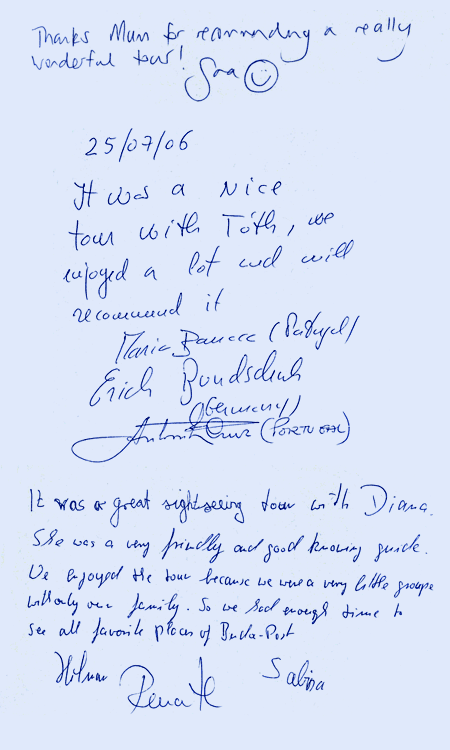 Thanks Mum for recommending a really
wonderful tour!
25/07/06
It was a nice
tour with Tóth, we
enjoyed a lot and will
recommend it
Maria (Portugal)
Erich Bundschuh
(Germany)
(PORTUGAL)
It was a great sightseeing tour with Diana.
She was a very friendly and good knowing guide.
We enjoyed the tour because we were a very little groupe
with only our family. So we had enough time to
see all favorite places of Buda-Pest
Renate Sabina